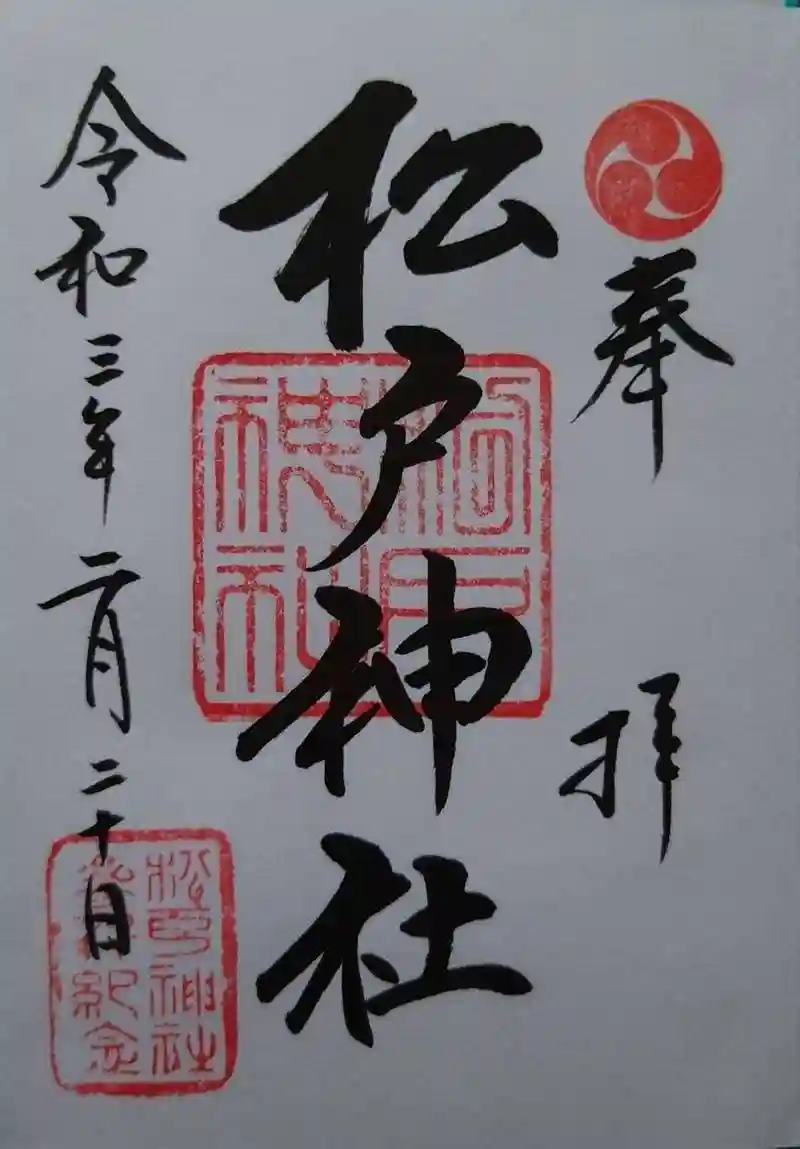 奉拝
松戸神社
令和三年二月二十日
松戸神社
松戸神社
参拝紀念